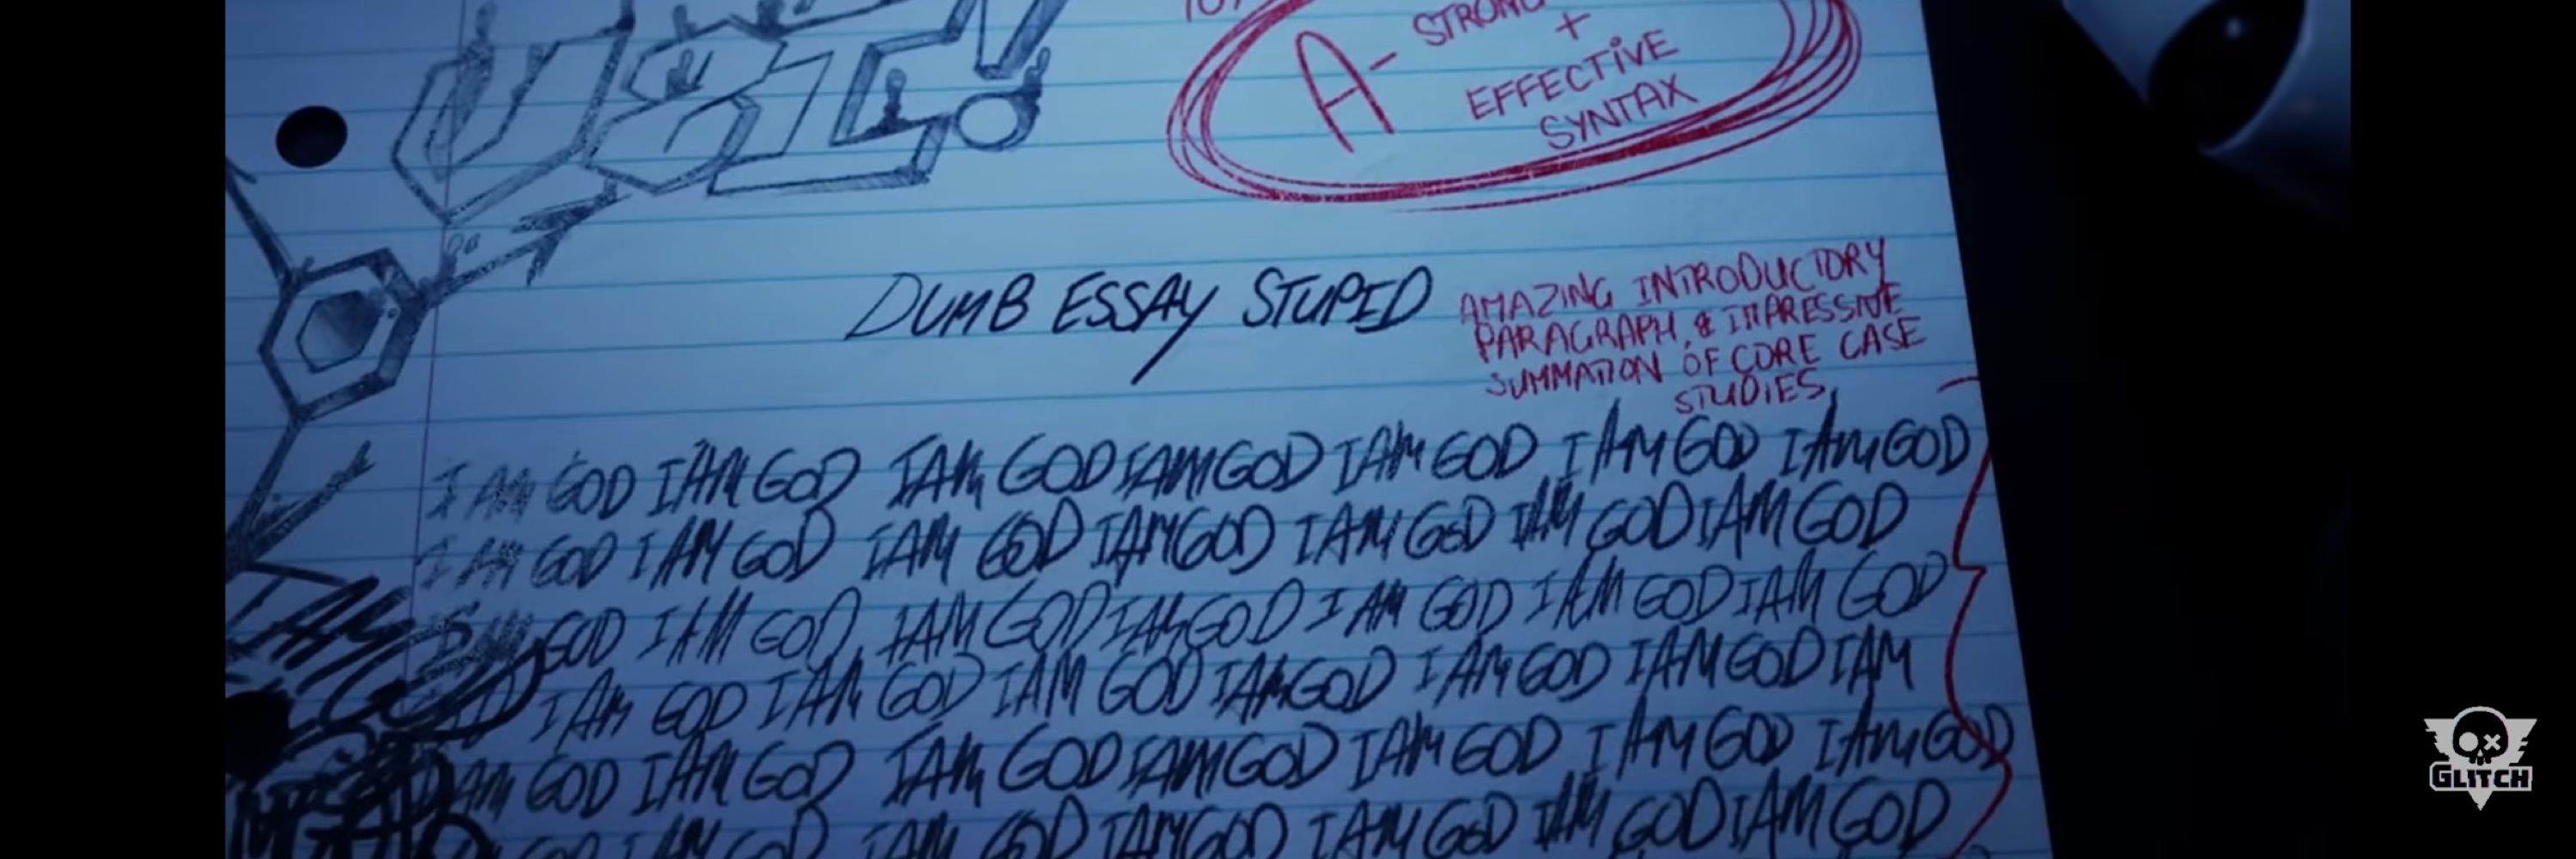 USE!
A- STRONG
+
EFFECTIVE
SYNTAX
DUMB ESSAY STUPID
AMAZING INTRODUCTORY
PARAGRAPH, & IMPRESSIVE
SUMMATION OF CORE CASE
STUDIES,
I AM GOD I AM GOD I AM GOD I AM GOD I AM GOD I AM GOD I AM GOD
I AM GOD I AM GOD I AM GOD I AM GOD I AM GOD I AM GOD I AM GOD
I AM GOD I AM GOD I AM GOD I AM GOD I AM GOD I AM GOD I AM GOD
I AM GOD I AM GOD I AM GOD I AM GOD I AM GOD I AM GOD I AM
I AM GOD I AM GOD I AM GOD I AM GOD I AM GOD I AM GOD I AM GOD
GOD I AM GOD I AM GOD I AM GOD I AM GOD I AM GOD I AM GOD
I AM GOD
GLITCH